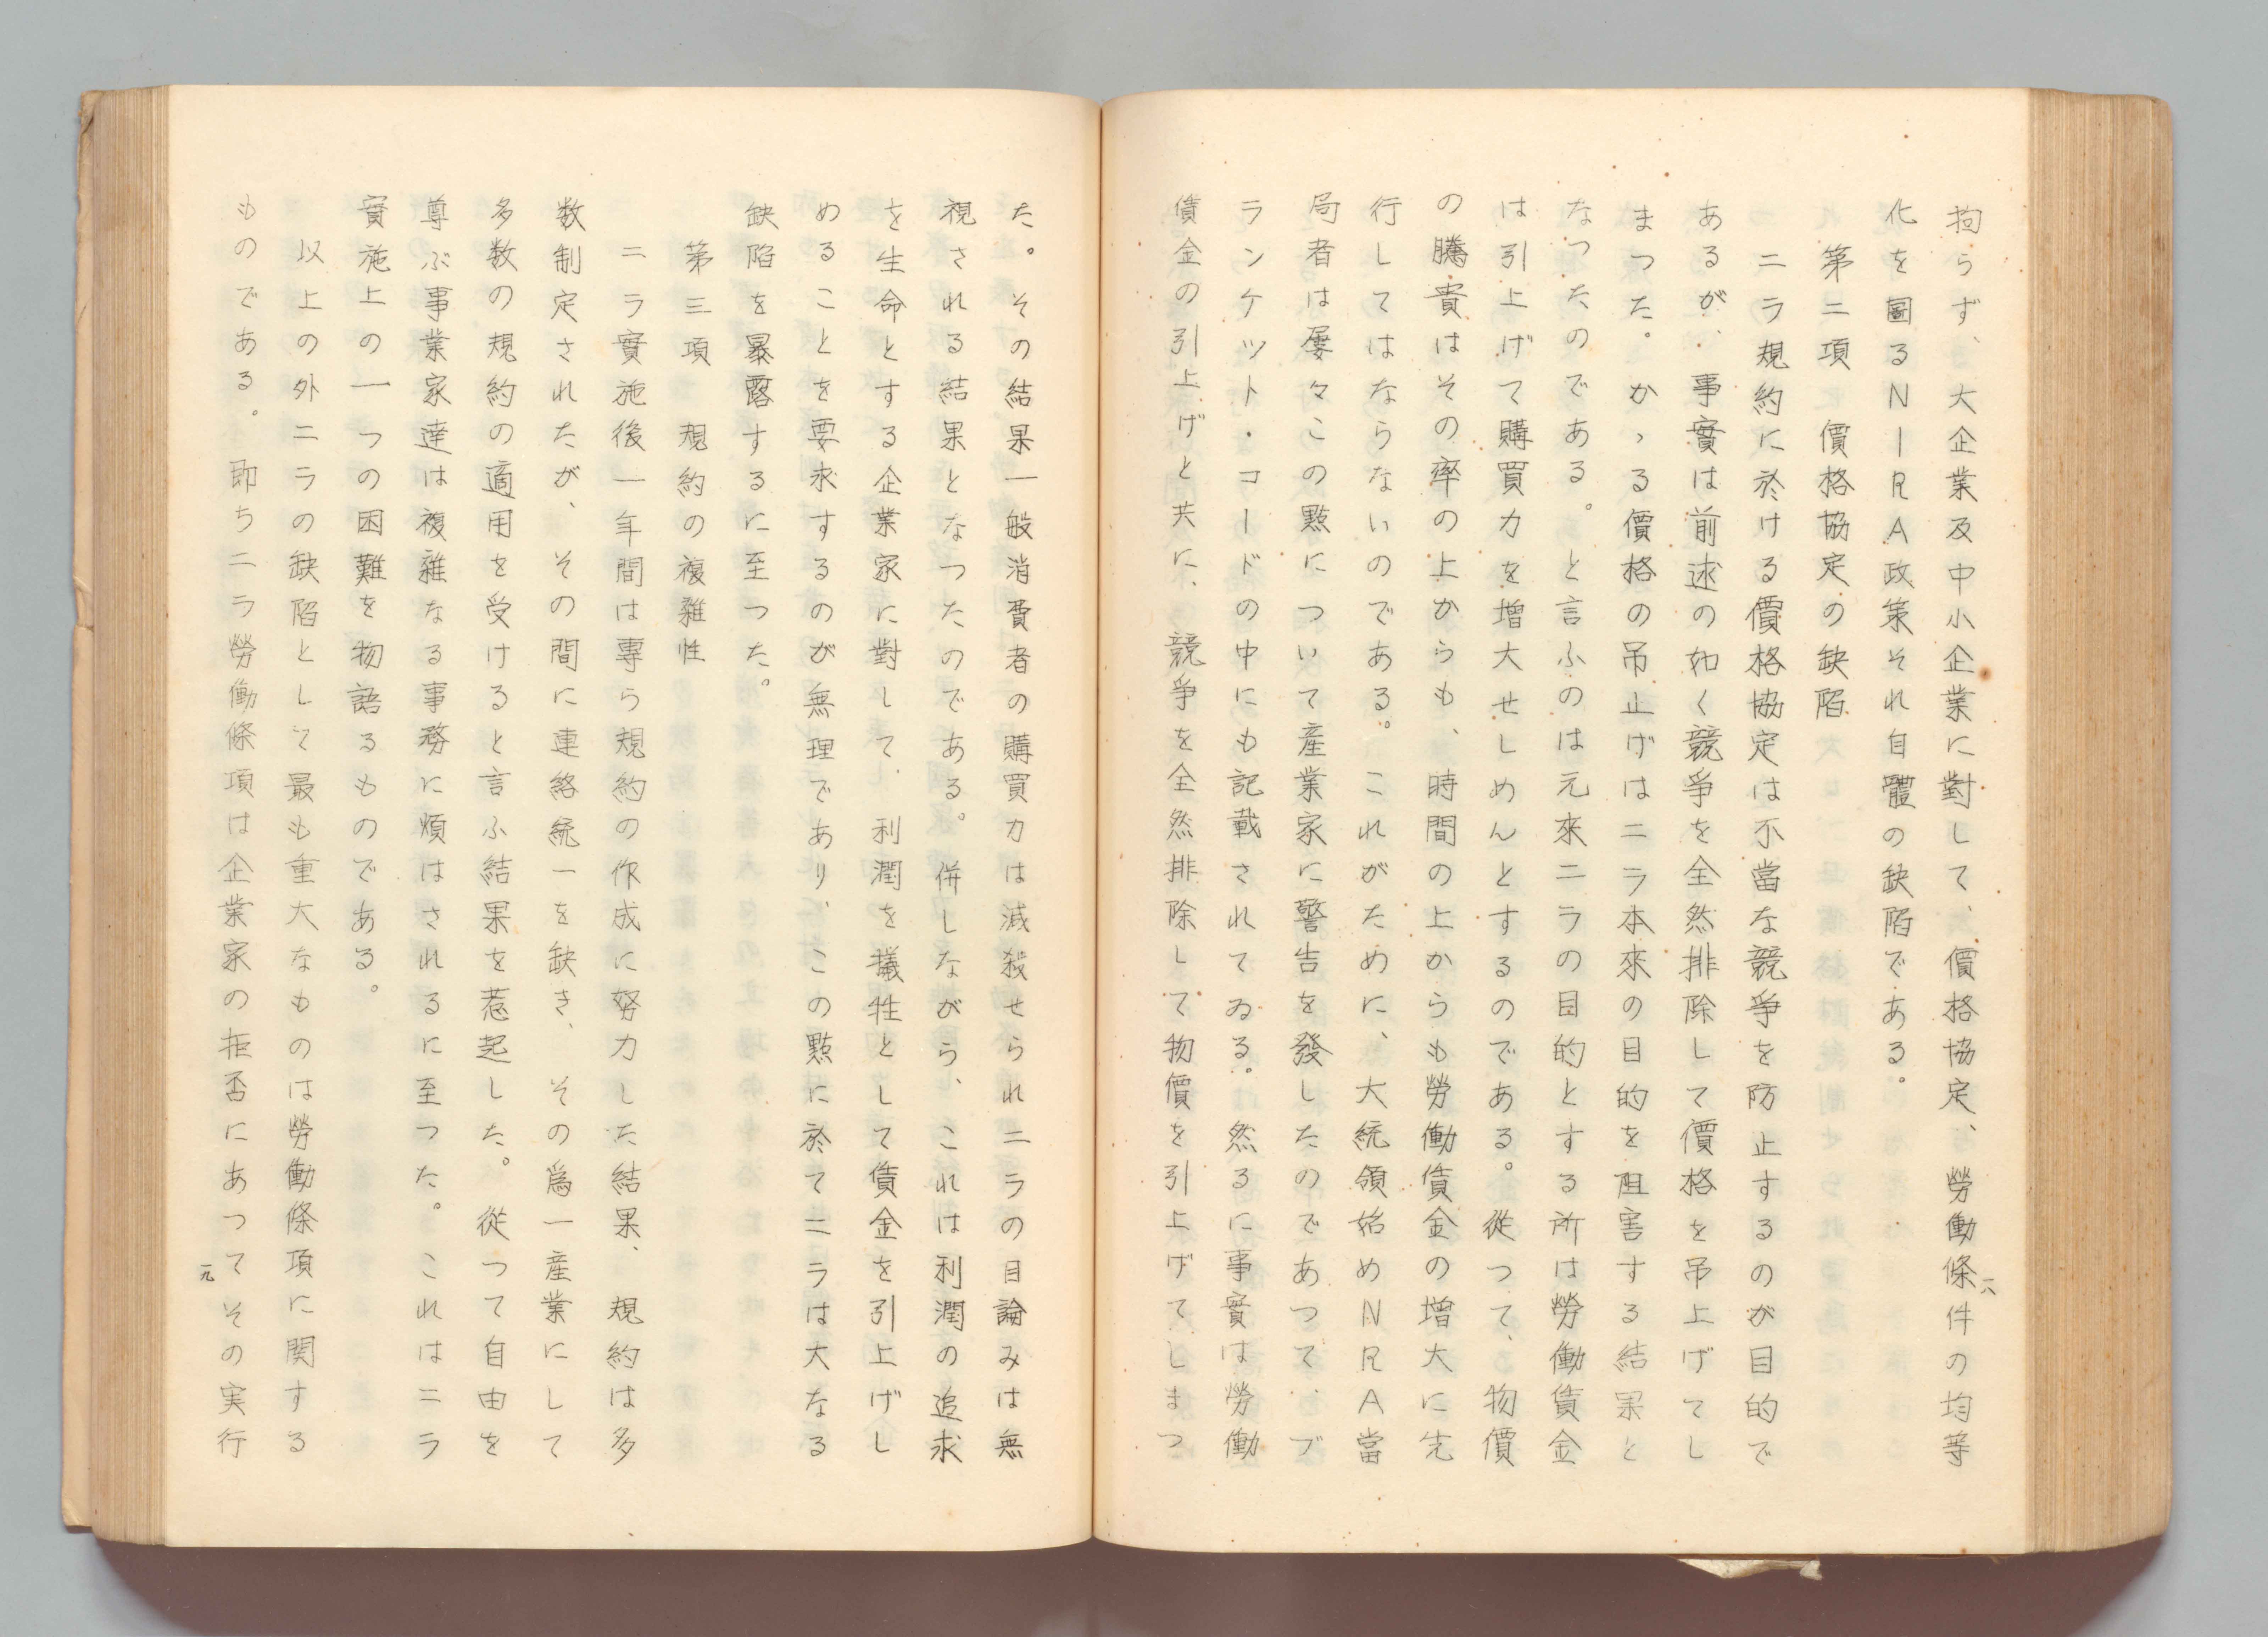 拘らず、大企業及中小企業に對して、價格協定、勞働條件の均等
化を圖るNIRA政策それ自體の缺陷である。
第二項　價格協定の缺陷
ニラ規約に於ける價格協定は不當な競爭を防止するのが目的で
あるが、事實は前述の如く競爭を全然排除して價格を吊上げてし
まつた。かゝる價格の吊上げはニラ本來の目的を阻害する結果と
なつたのである。と言ふのは元來ニラの目的とする所は勞働賃金
は引上げて購買力を增大せしめんとするのである。從つて、物價
の騰貴はその率の上からも、時間の上からも勞働賃金の增大に先
行してはならないのである。これがために、大統領始めNRA當
局者は屢々この點について產業家に警告を發したのであつて、ブ
ランケツト・コードの中にも記載されてゐる。然るに事實は勞働
賃金の引上げと共に、競爭を全然排除して物價を引上げてしまつ
一八
た。その結果一般消費者の購買力は減殺せられニラの目論みは無
視される結果となつたのである。併しながら、これは利潤の追求
を生命とする企業家に對して、利潤を犠牲として賃金を引上げし
めることを要求するのが無理であり、この點に於てニラは大なる
缺陷を暴露するに至つた。
第三項　規約の複雜性
ニラ實施後一年間は專ら規約の作成に努力した結果、規約は多
数制定されたが、その間に連絡統一を缺き、その爲一產業にして
多数の規約の適用を受けると言ふ結果を惹起した。從つて自由を
尊ぶ事業家達は複雜なる事務に煩はされるに至つた。これはニラ
實施上の一つの困難を物語るものである。
以上の外ニラの缺陷として最も重大なものは勞働條項に関する
ものである。即ちニラ勞働條項は企業家の拒否にあつてその実行
一九